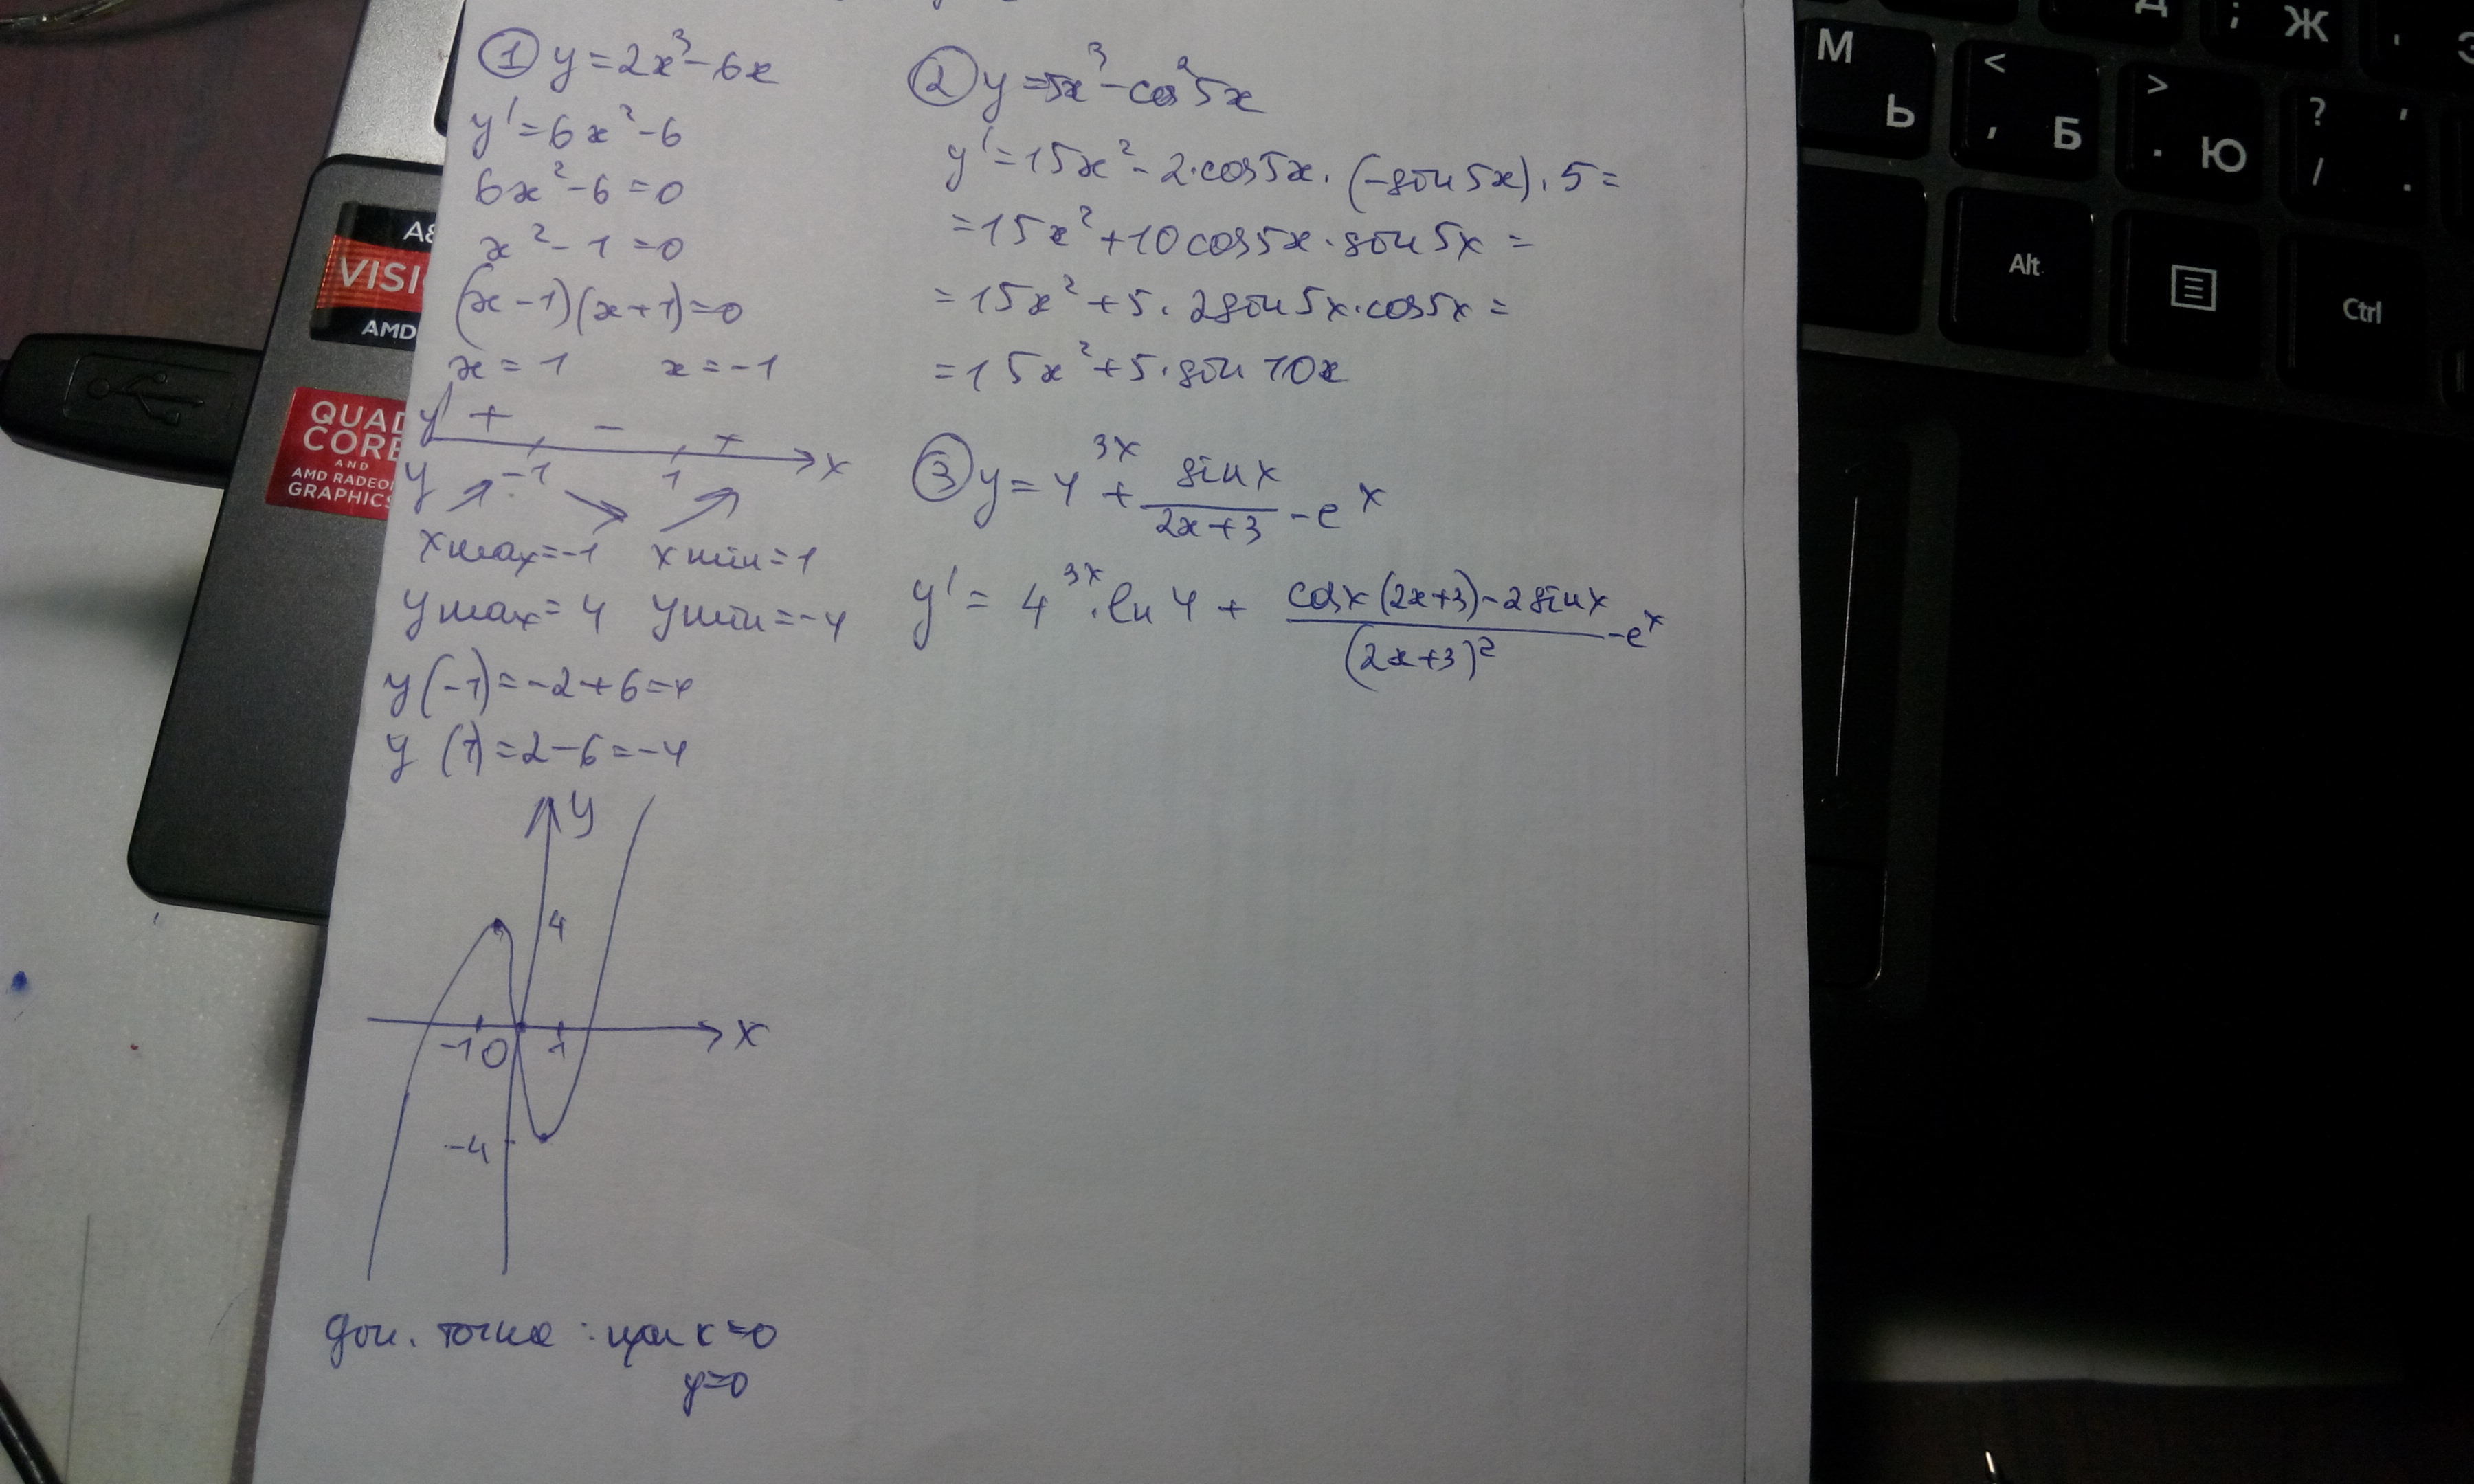 ① y = 2x³ - 6x
y' = 6x² - 6
6x² - 6 = 0
x² - 1 = 0
(x - 1)(x + 1) = 0
x = 1 x = -1
y' + - +
-1 1 x
y
x max = -1 x min = 1
y max = 4 y min = -4
y(-1) = -2 + 6 = 4
y(1) = 2 - 6 = -4
y
4
-1 0 1 x
-4
доп. точка : при x = 0
y = 0
② y = 5x³ - cos²5x
y' = 15x² - 2·cos5x·(-sin5x)·5 =
= 15x² + 10cos5x·sin5x =
= 15x² + 5·2sin5x·cos5x =
= 15x² + 5·sin10x
③ y = 4^{3x} + \frac{sin x}{2x+3} - e^x
y' = 4^{3x}·ln 4 + \frac{cos x(2x+3) - 2sin x}{(2x+3)²} - e^x
VISI
AMD
QUAD
CORE
AND
AMD RADEO
GRAPHICS
Д ; Ж
М Ь < , Б > . Ю ? / ' .
Alt Ctrl